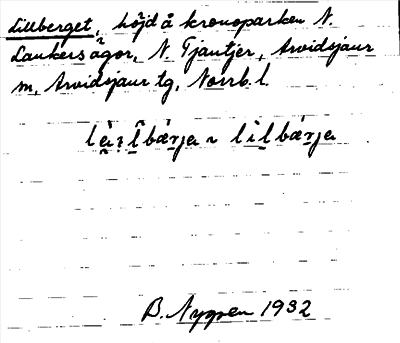 Lillberget, höjd å kronoparken N.
Laukersågor, N. Tjautjer, Arvidsjaur
m, Arvidsjaur tg, Norrb. l.
bærja ~ lìlbærja
B. Nygren 1932